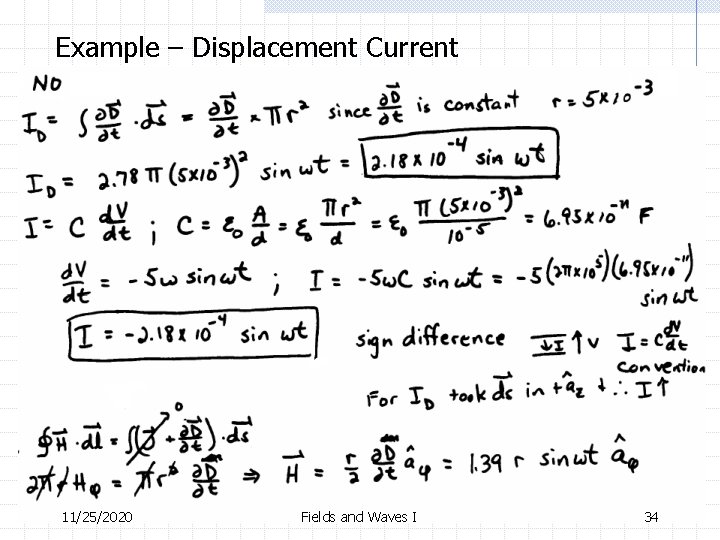 Example – Displacement Current
NO
I_D = ∫ ∂D⃗/∂t · ds⃗ = ∂D⃗/∂t × πr² since ∂D⃗/∂t is constant r = 5×10⁻³
I_D = 2.78 π (5×10⁻³)² sin ωt = 2.18 × 10⁻⁴ sin ωt
I = C dV/dt ; C = ε₀ A/d = ε₀ πr²/d = ε₀ π(5×10⁻³)²/10⁻⁵ = 6.95×10⁻¹¹ F
dV/dt = -5ω sin ωt ; I = -5ωC sin ωt = -5(2π×10⁵)(6.95×10⁻¹¹)
sin ωt
I = -2.18 × 10⁻⁴ sin ωt sign difference ↓I ↑ V I = C dV/dt
convention
For I_D took ds⃗ in +â_z ∴ I ↑
∮ H⃗ · dl⃗ = ∫(J⃗ + ∂D⃗/∂t) · ds⃗ 0
2πr H_φ = πr² ∂D⃗/∂t ⇒ H⃗ = r/2 ∂D/∂t â_φ = 1.39 r sin ωt â_φ
11/25/2020 Fields and Waves I 34